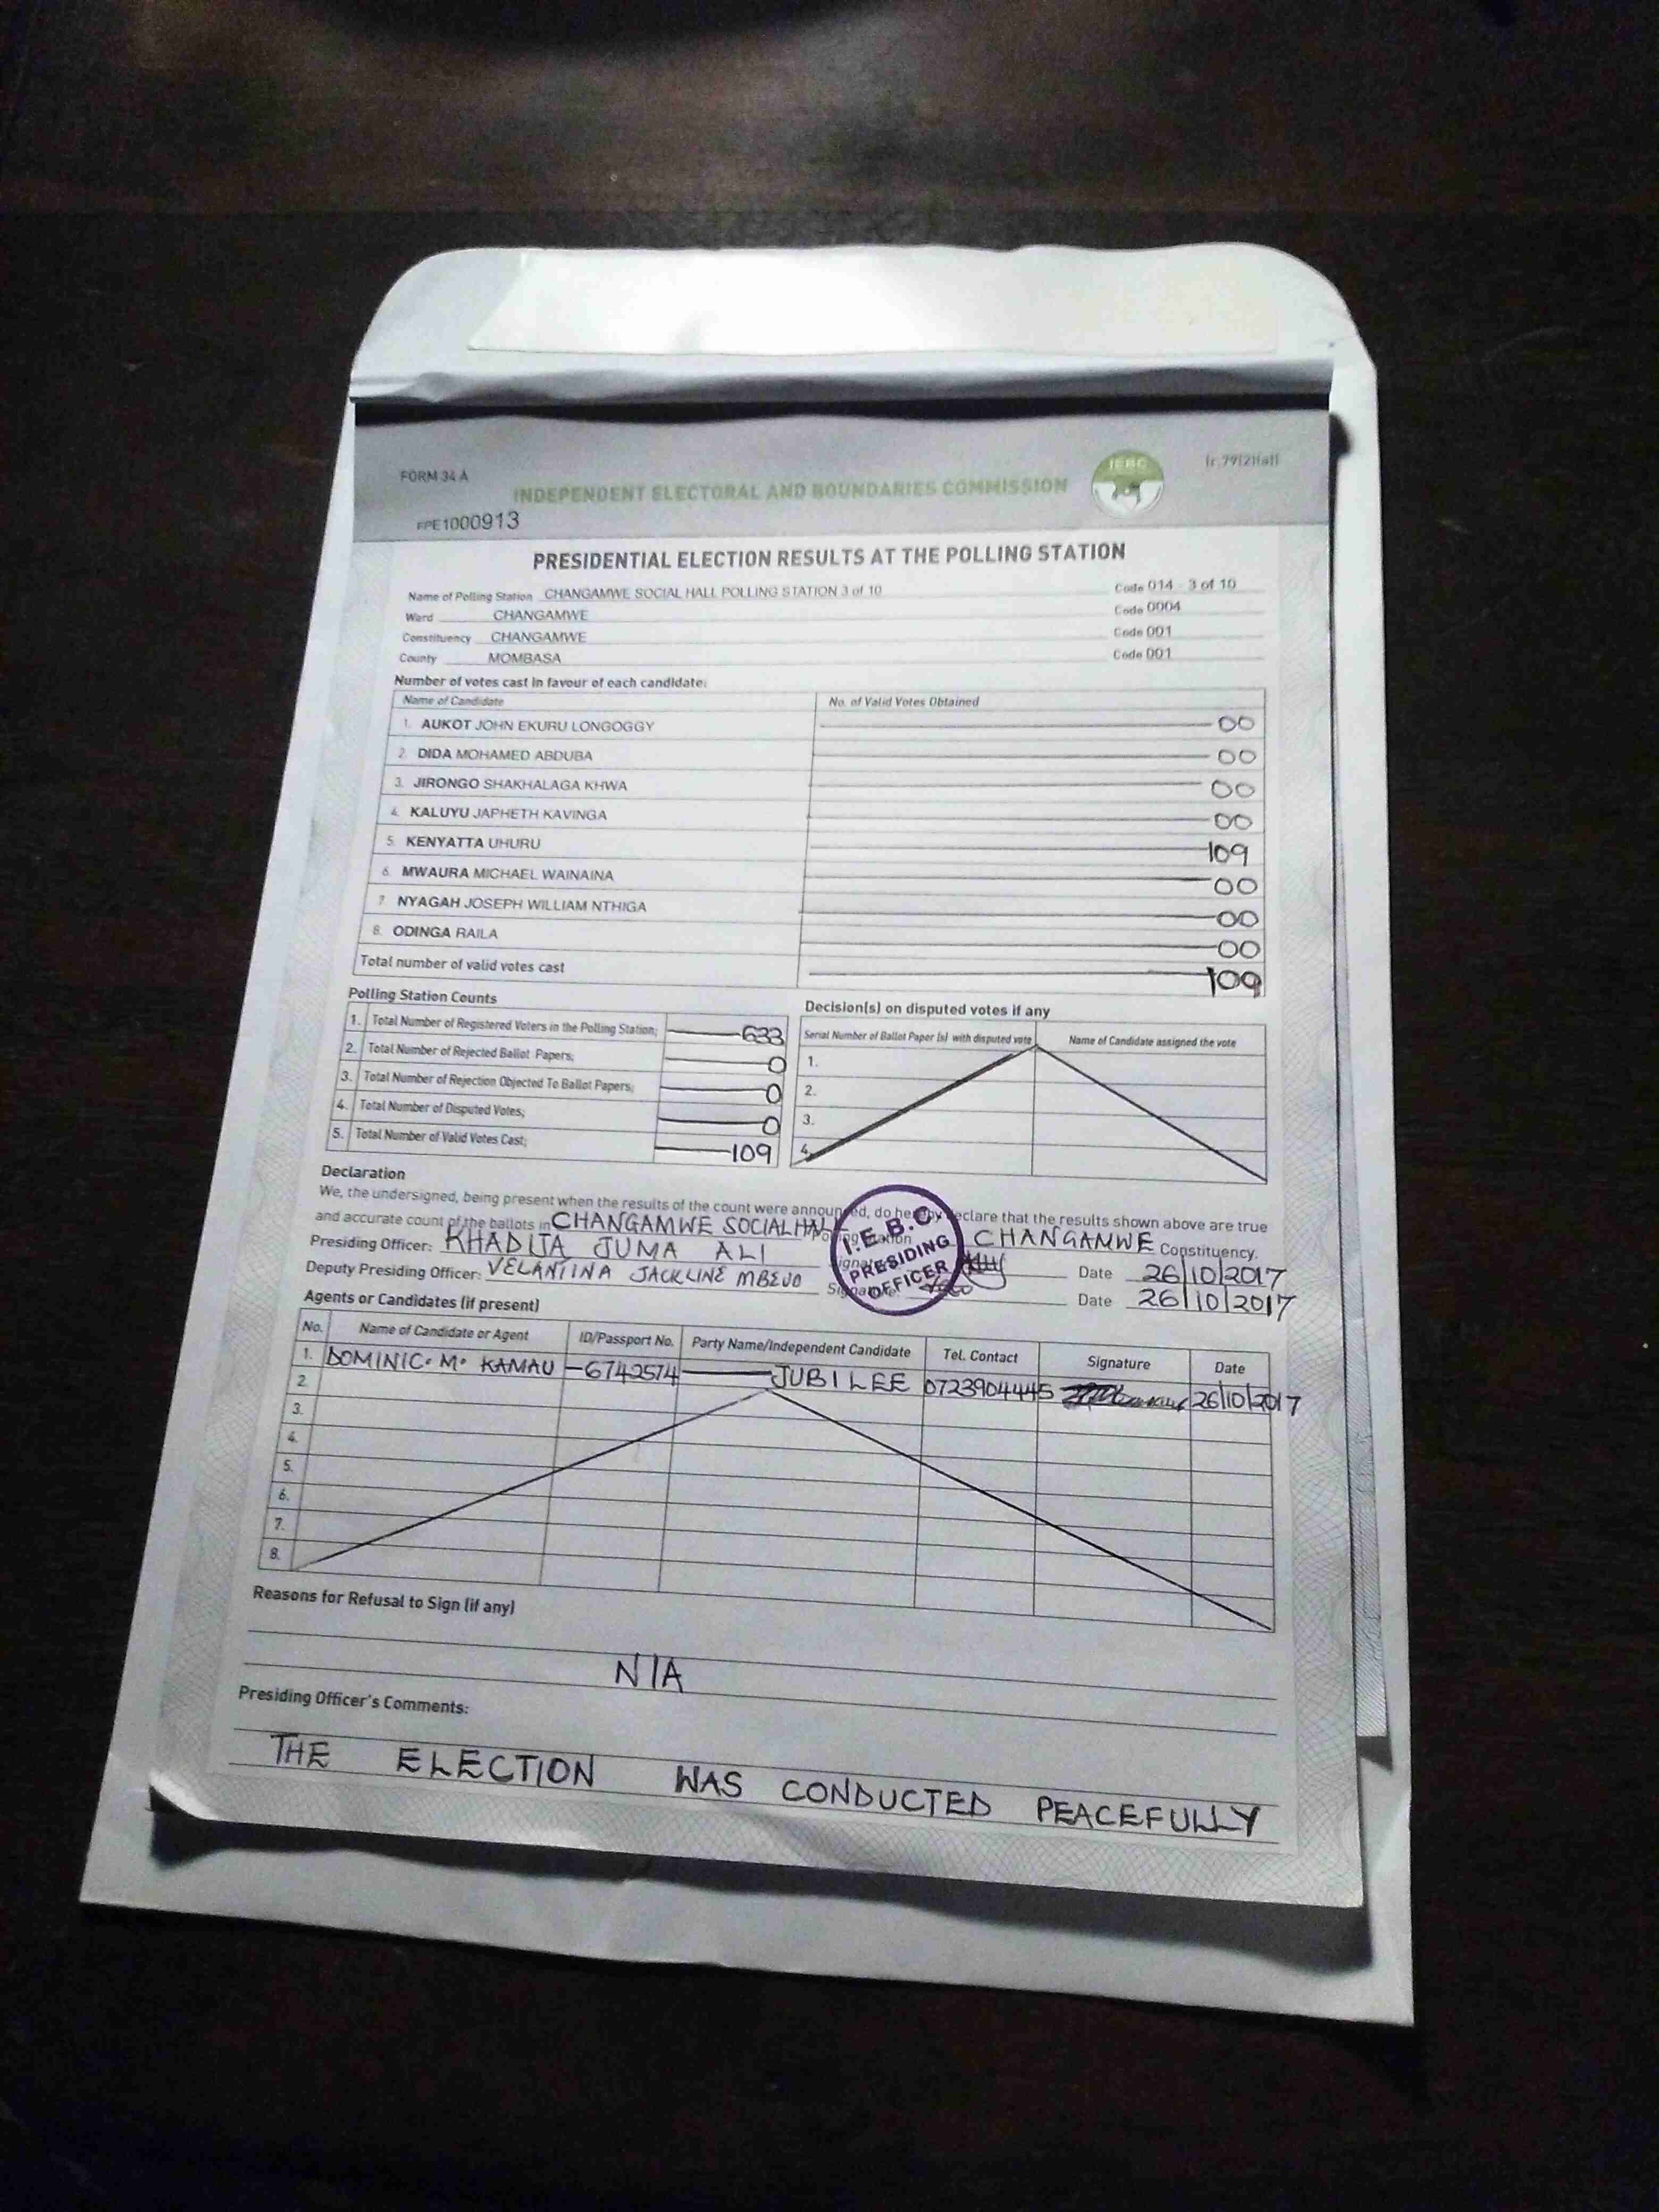 FORM 34 A
INDEPENDENT ELECTORAL AND BOUNDARIES COMMISSION
IEBC
FPE1000913
PRESIDENTIAL ELECTION RESULTS AT THE POLLING STATION
Name of Polling Station CHANGAMWE SOCIAL HALL POLLING STATION 3 of 10 Code 014 - 3 of 10
Ward CHANGAMWE Code 0004
Constituency CHANGAMWE Code 001
County MOMBASA Code 001
Number of votes cast in favour of each candidate:
Name of Candidate No. of Valid Votes Obtained
1. AUKOT JOHN EKURU LONGOGGY 00
2. DIDA MOHAMED ABDUBA 00
3. JIRONGO SHAKHALAGA KHWA 00
4. KALUYU JAPHETH KAVINGA 00
5. KENYATTA UHURU 109
6. MWAURA MICHAEL WAINAINA 00
7. NYAGAH JOSEPH WILLIAM NTHIGA 00
8. ODINGA RAILA 00
Total number of valid votes cast 109
Polling Station Counts
1. Total Number of Registered Voters in the Polling Station; 633
2. Total Number of Rejected Ballot Papers; 0
3. Total Number of Rejection Objected To Ballot Papers; 0
4. Total Number of Disputed Votes; 0
5. Total Number of Valid Votes Cast; 109
Decision(s) on disputed votes if any
Serial Number of Ballot Paper (s) with disputed vote Name of Candidate assigned the vote
1.
2.
3.
4.
Declaration
We, the undersigned, being present when the results of the count were announced, do hereby declare that the results shown above are true
and accurate count of the ballots in CHANGAMWE SOCIAL HALL Polling Station CHANGAMWE Constituency.
Presiding Officer: KHADIJA JUMA ALI Signature Date 26/10/2017
Deputy Presiding Officer: VELANTINA JACKLINE MBEYO Signature Date 26/10/2017
I.E.B.C
PRESIDING
OFFICER
Agents or Candidates (if present)
No. Name of Candidate or Agent ID/Passport No. Party Name/Independent Candidate Tel. Contact Signature Date
1. DOMINIC. M. KAMAU 6742574 JUBILEE 0723904445 26/10/2017
2.
3.
4.
5.
6.
7.
8.
Reasons for Refusal to Sign (if any)
N/A
Presiding Officer's Comments:
THE ELECTION WAS CONDUCTED PEACEFULLY